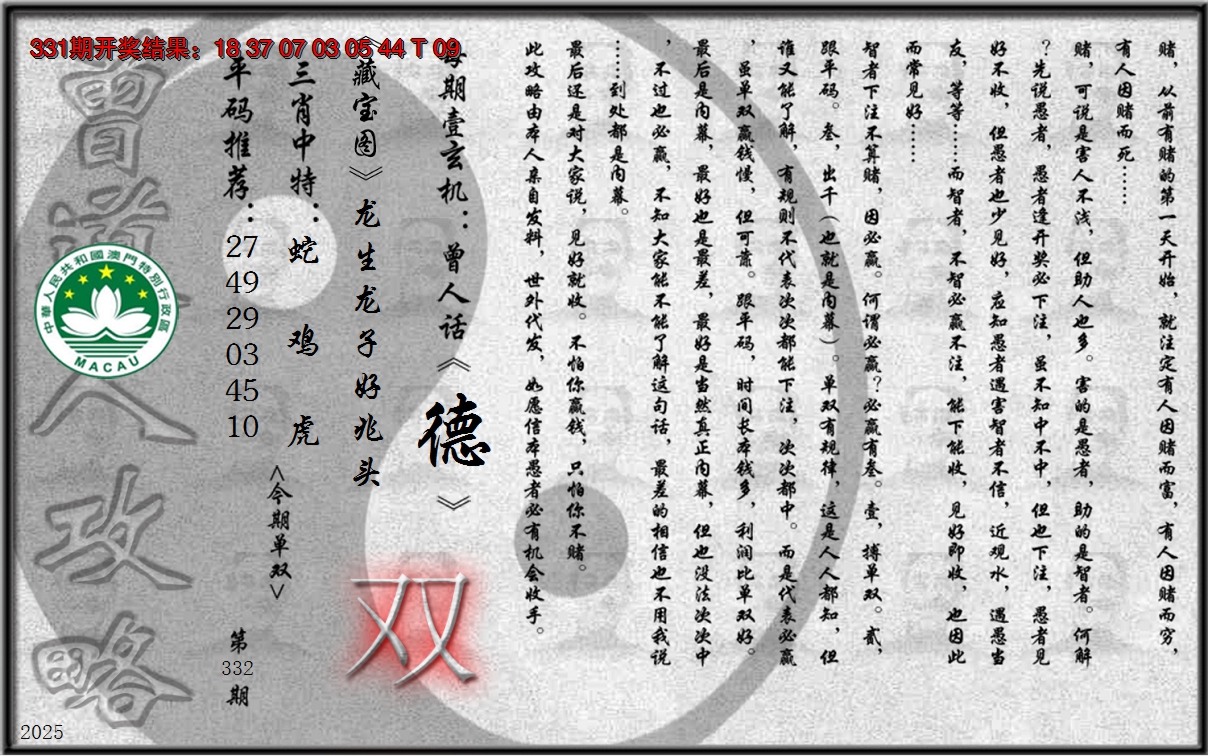 331期开奖结果：18 37 07 03 05 44 T 09
赌，从前有赌的第一天开始，就注定有人因赌而富，有人因赌而穷，
有人因赌而死……
赌，可说是害人不浅，但助人也多。害的是愚者，助的是智者。何解
？先说愚者，愚者逢开奖必下注，虽不知中不中，但也下注，愚者见
好不收，但愚者也少见好，应知愚者遇害智者不信，近观水，遇愚当
友，等等……而智者，不智必赢不注，能下能收，见好即收，也因此
而常见好……
智者下注不算赌，因必赢。何谓必赢？必赢有叁。壹，搏单双。贰，
跟平码。叁，出千（也就是内幕）。单双有规律，这是人人都知，但
谁又能了解，有规则不代表次次都能下注，次次都中。而是代表必赢
，虽单双赢钱慢，但可靠。跟平码，时间长本钱多，利润比单双好。
最后是内幕，最好也是最差，最好是当然真正内幕，但也没法次次中
，不过也必赢，不知大家能不能了解这句话，最差的相信也不用我说
……到处都是内幕。
最后还是对大家说，见好就收。不怕你赢钱，只怕你不赌。
此攻略由本人亲自发料，世外代发，如愿信本愚者必有机会收手。
每期壹玄机：曾人话《德》
《藏宝图》龙生龙子好兆头
双
三肖中特：蛇 鸡 虎
<今期单双>
平码推荐：27 49 29 03 45 10
第332期
曾道人攻略
中華人民共和國澳門特別行政區
MACAU
2025